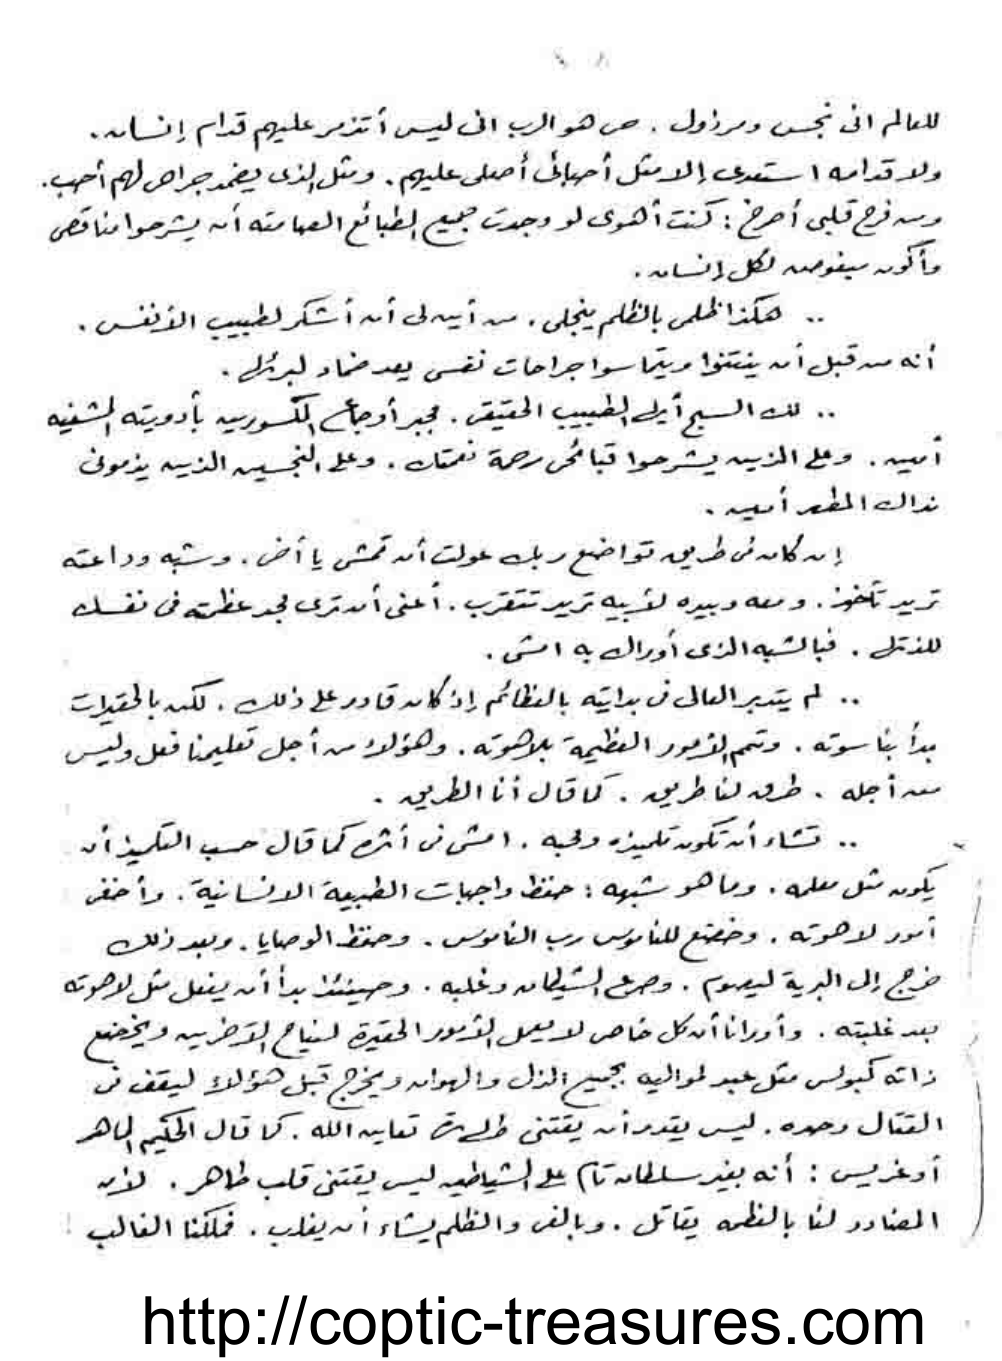 للعالم انى نجس ومرذول . حى هو الرب انى ليس أتذمر عليهم قدام إنسان .
ولا قدامه استعدى إلا مثل أحبائى أصلى عليهم . ومثل الذى يضمد جراحى لهم أحب .
ومن فرح قلبى أصرخ : كنت أهوى لو وجدت جميع الطبائع الصامته أن يشرحوا مناقصى
وأكون مبغوض لكل إنسان .
.. هكذا ظلمى بالظلم ينجلى . من أين لى أن أشكر لطبيب الأنفس .
أنه من قبل أن ينتنوا ويتماسوا جراحات نفسى يعد ضماد لبرئها .
.. لك السبح أيها الطبيب الحقيقى . مجبر أوجاع المكسورين بأدويته المشفيه
أمين . وعلى الذين يشرحوا قبائحى رحمة نعمتك . وعلى النجسين الذين يذمونى
نداك المطهر أمين .
إن كان فى طريق تواضع ربك عولت أن تمشى يا أخى . وشبه وداعته
تريد تأخذ . ومعه وبيده لأبيه تريد تتقرب . أعنى أن ترى مجد عظمته فى نفسك
للذتك . فبالشبه الذى أوراك به امشى .
.. لم يتدبر العالى فى بدايته بالعظائم إذ كان قادر على ذلك . لكن بالحقيرات
بدأ بناسوته . وتمم الأمور العظيمة بلاهوته . وهؤلاء من أجل تعليمنا فعل وليس
من أجله . طرق لنا طريق . كما قال أنا الطريق .
.. تشاء أن تكون تلميذه ومحبه . امشى فى أثره كما قال حسب التلميذ أن
يكون مثل معلمه . وما هو شبهه : حفظ واجبات الطبيعة الانسانية . وأخفى
أمور لاهوته . وخضع للناموس رب الناموس . وحفظ الوصايا . وبعد ذلك
خرج إلى البرية ليصوم . وصرع الشيطان وغلبه . وحينئذ بدأ أن يفعل مثل لاهوته
بعد غلبته . وأورانا أن كل خاص لا يعمل الأمور الحقيرة لنياح الآخرين ويخضع
ذاته كبولس مثل عبد لمواليه بجميع الذل والهوان ويخرج قبل هؤلاء ليقف فى
القتال وحده . ليس يقدر أن يقتنى طهارة تعاين الله . كما قال الحكيم الماهر
أوغريس : أنه بغير سلطان تام على الشياطين ليس يقتنى قلب طاهر . لأن
المضادد لنا بالعظمه يقاتل . وبالغى والظلم يشاء أن يغلب . فملكنا الغالب
http://coptic-treasures.com